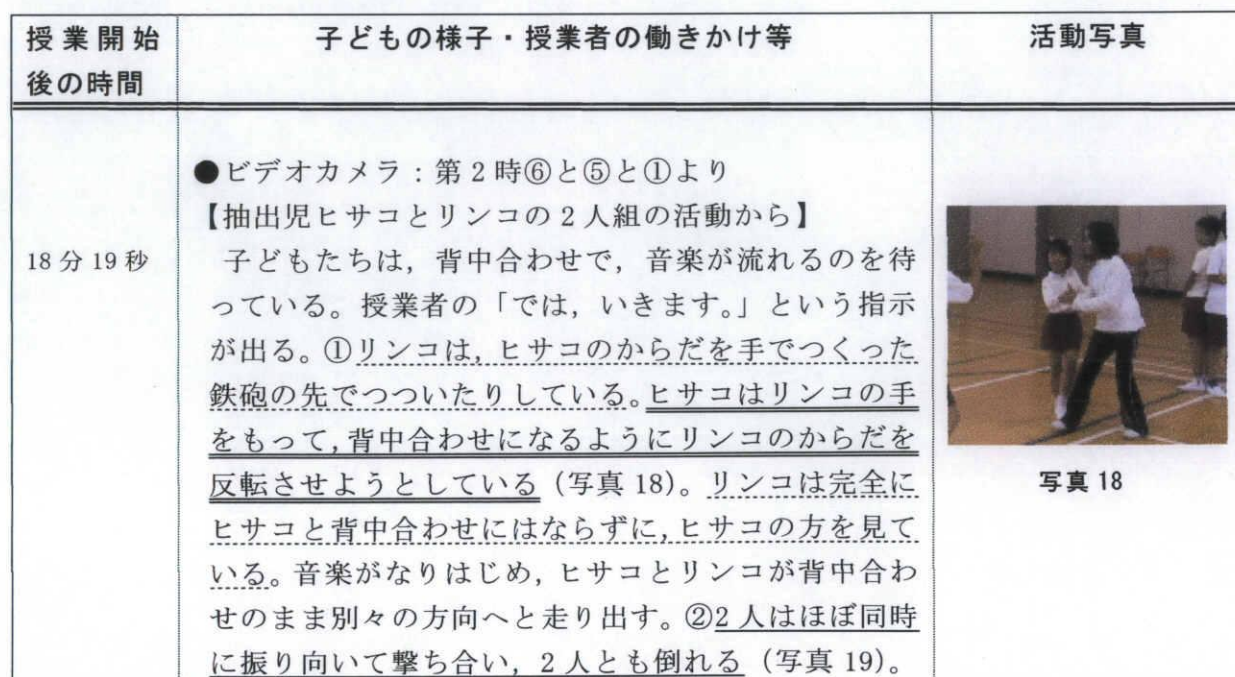 授業開始
後の時間
子どもの様子・授業者の働きかけ等
活動写真
●ビデオカメラ:第2時⑥と⑤と①より
【抽出児ヒサコとリンコの2人組の活動から】
18分19秒
子どもたちは,背中合わせで,音楽が流れるのを待
っている。授業者の「では,いきます。」という指示
が出る。①リンコは,ヒサコのからだを手でつくった
鉄砲の先でつついたりしている。ヒサコはリンコの手
をもって,背中合わせになるようにリンコのからだを
反転させようとしている(写真18)。リンコは完全に
ヒサコと背中合わせにはならずに,ヒサコの方を見て
いる。音楽がなりはじめ,ヒサコとリンコが背中合わ
せのまま別々の方向へと走り出す。②2人はほぼ同時
に振り向いて撃ち合い,2人とも倒れる(写真19)。
写真18